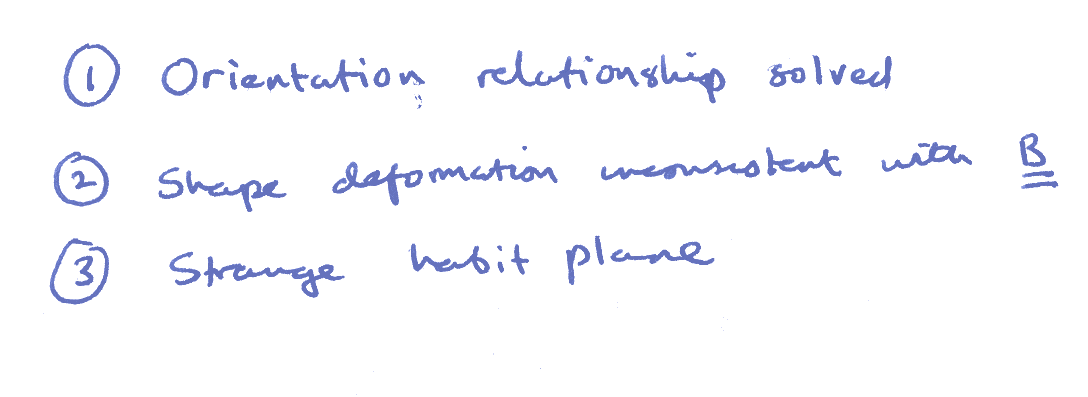 ① Orientation relationship solved
② Shape deformation inconsistent with B
③ Strange habit plane